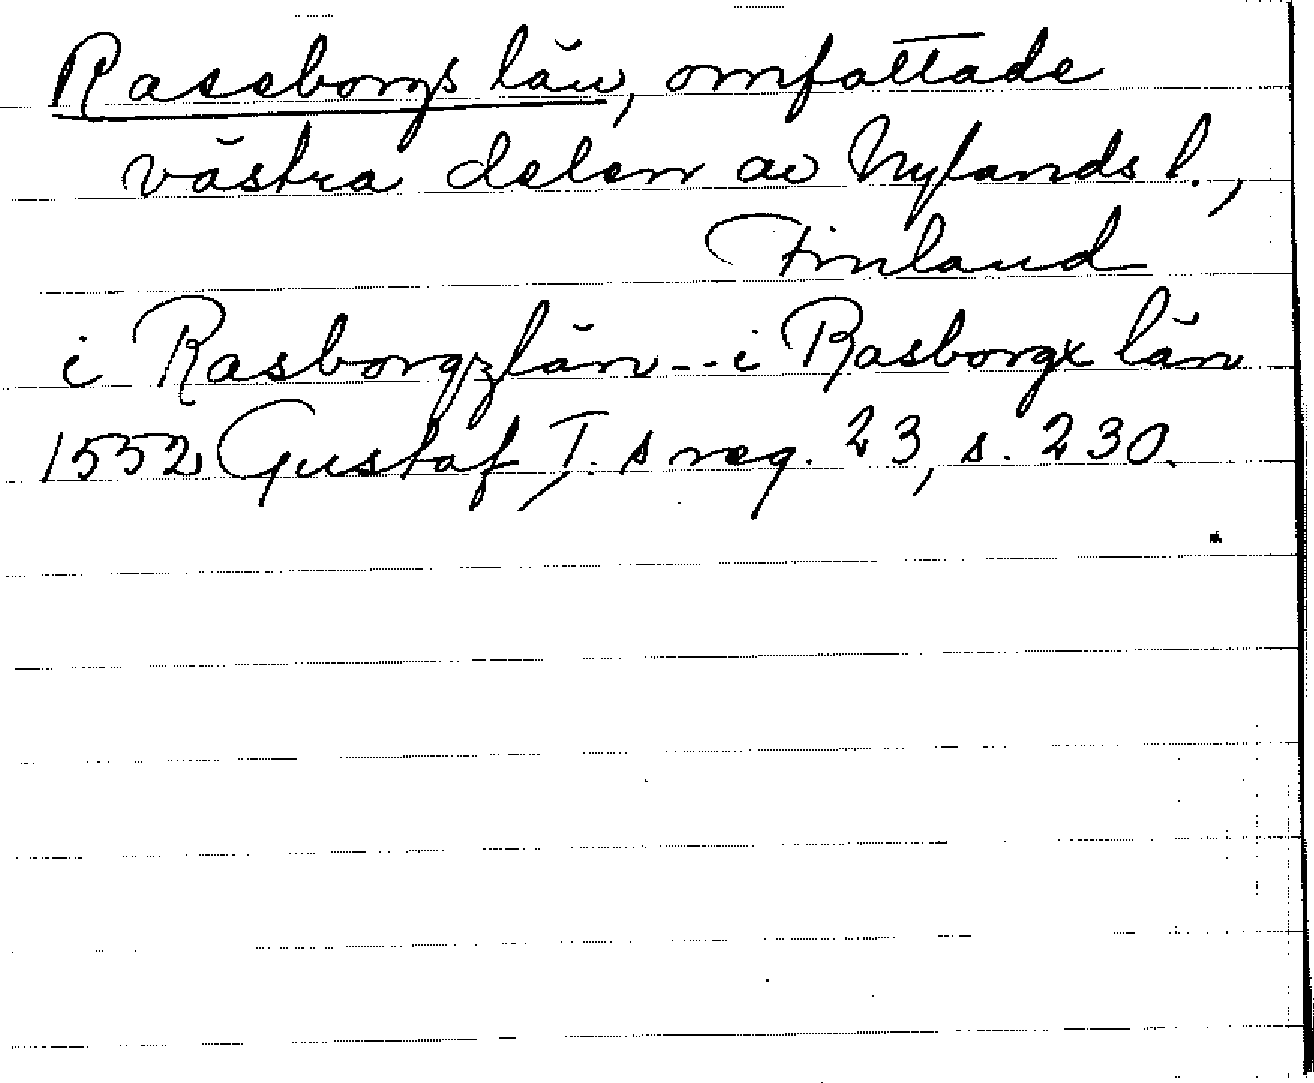 Raseborgs län, omfattade
västra delen av Nylands l.,
Finland
i Rasborgzlän -- i Rasborgx län
1552 Gustaf I. s reg. 23, s. 230.